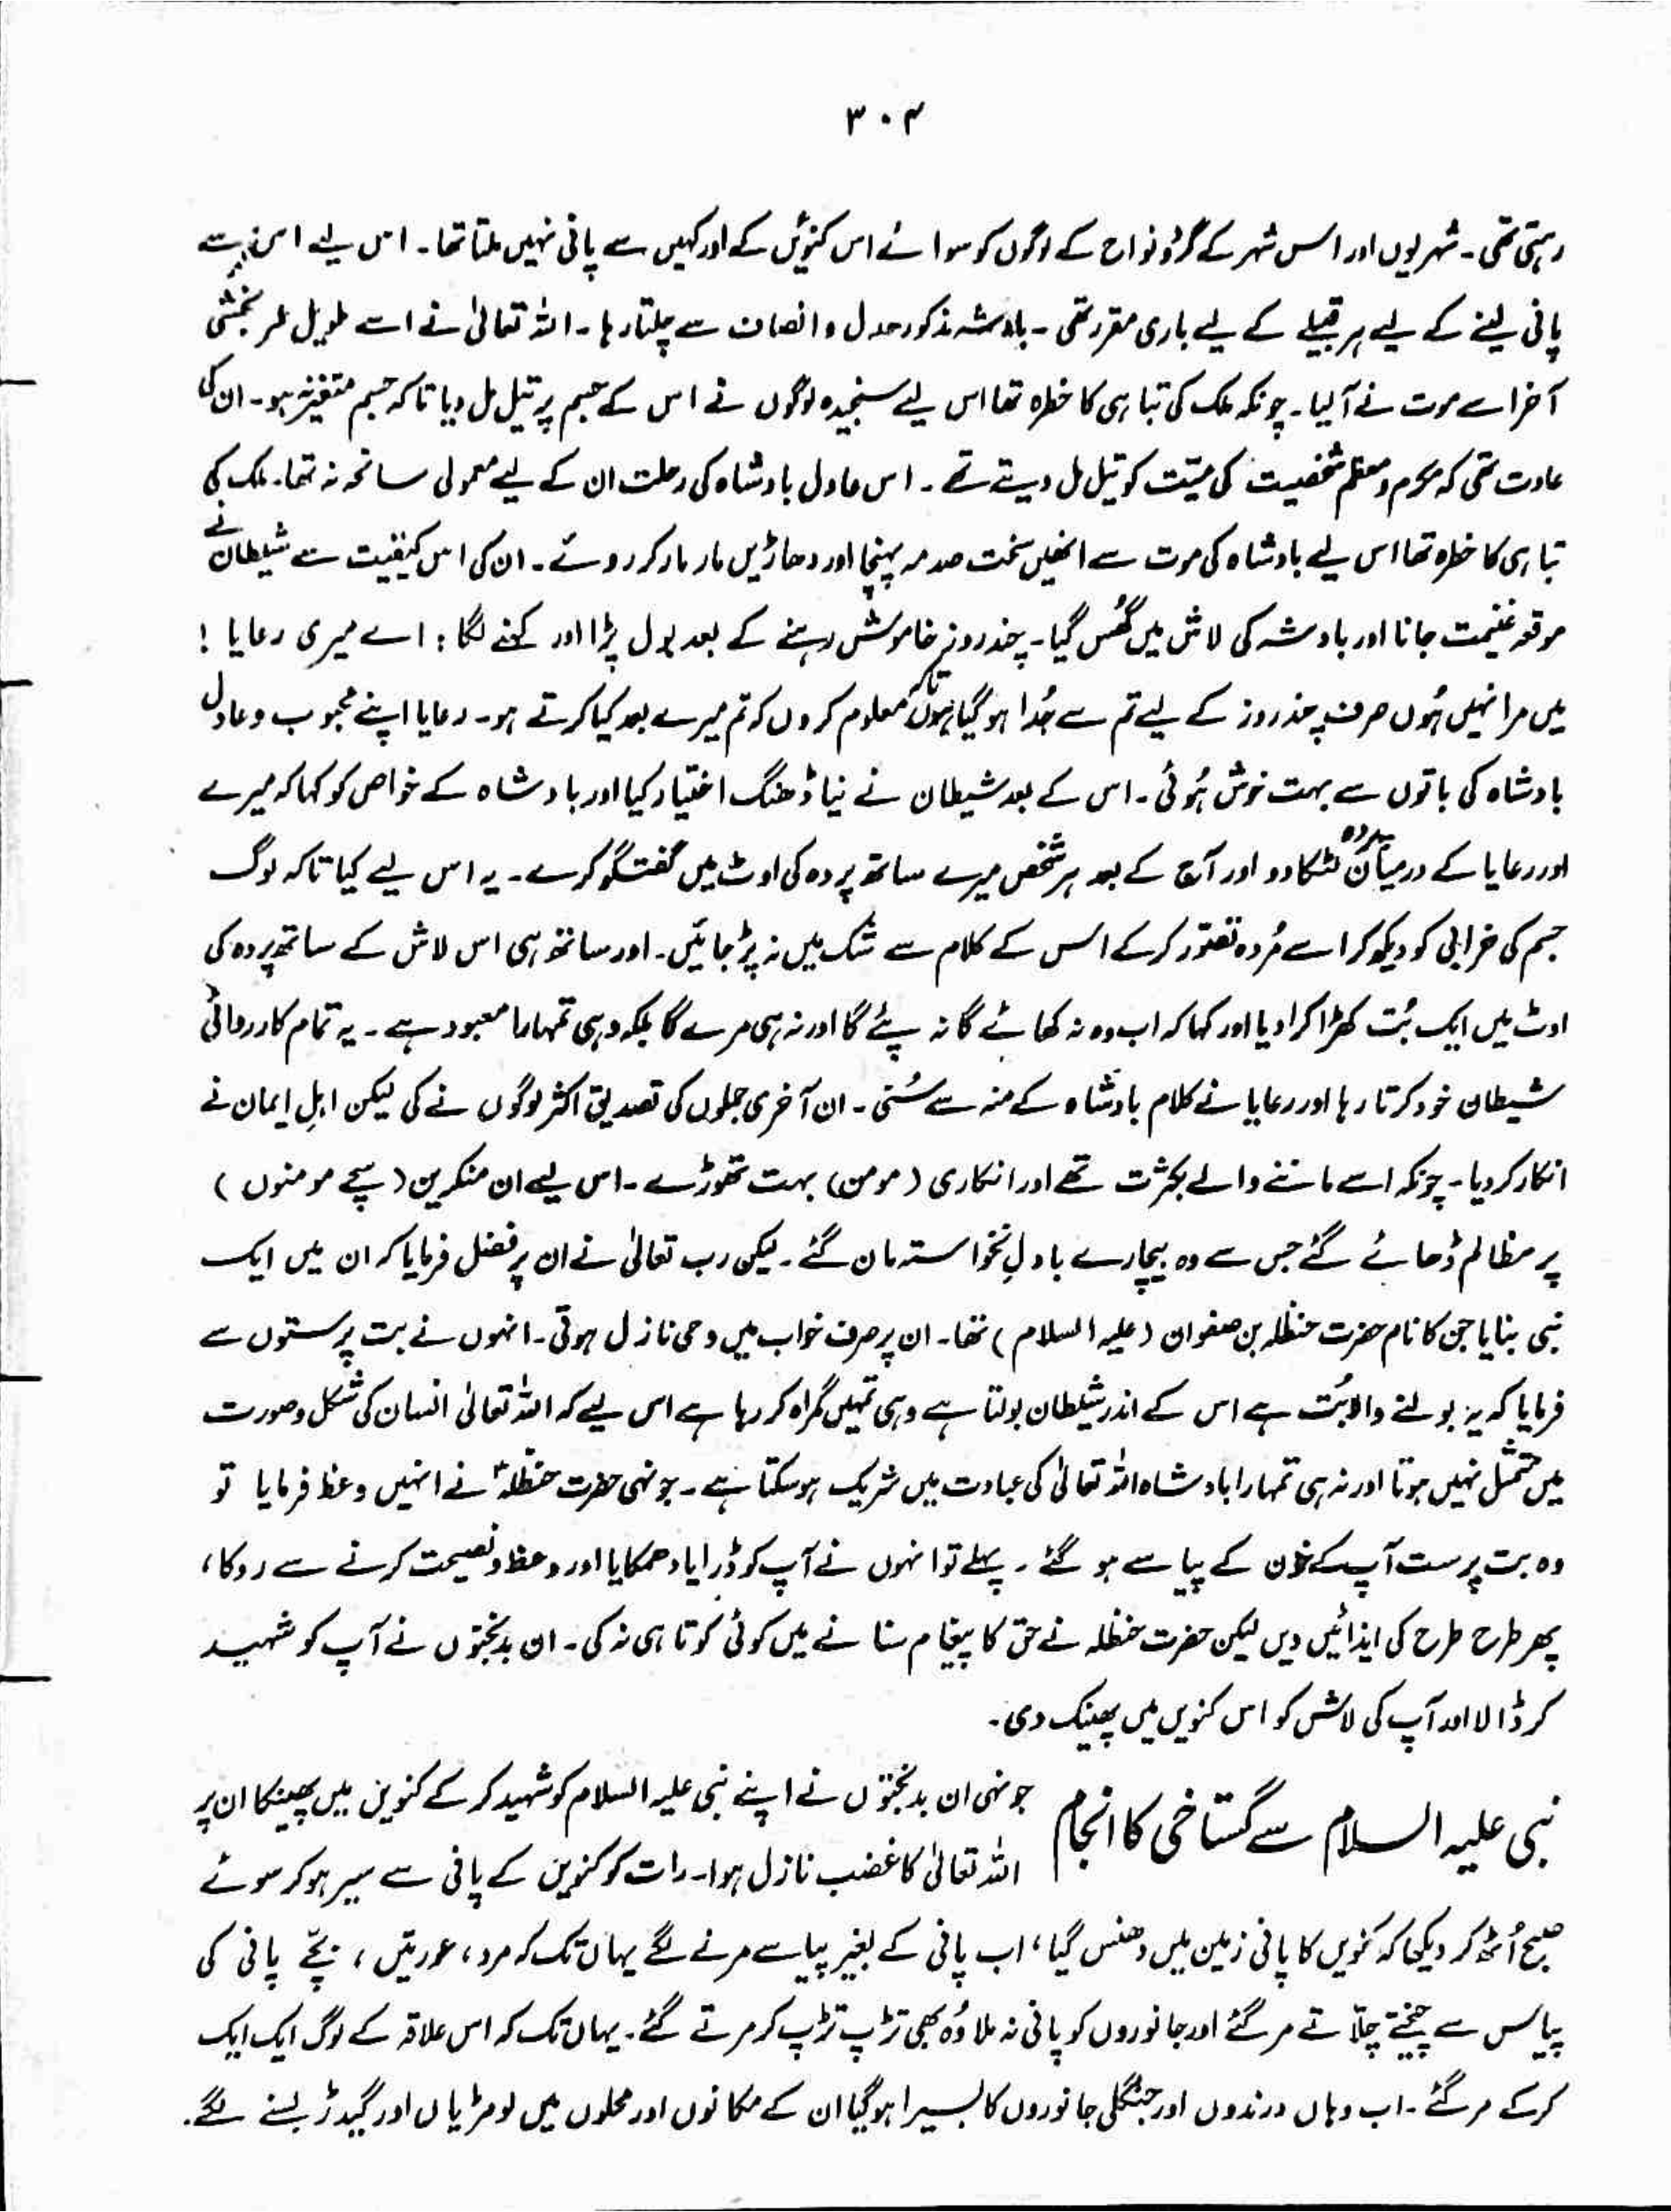 ۳۰۴
رہتی تھی۔ شہریوں اور اس شہر کے گرد و نواح کے لوگوں کو سوائے اس کنوئیں کے اور کہیں سے پانی نہیں ملتا تھا۔ اس لیے اس سے
پانی لینے کے لیے ہر قبیلے کے لیے باری مقرر تھی۔ بادشہ مذکور عدل و انصاف سے چلتا رہا۔ اللہ تعالیٰ نے اسے طویل عمر بخشی
آخر اسے موت نے آلیا۔ چونکہ ملک کی تباہی کا خطرہ تھا اس لیے سنجیدہ لوگوں نے اس کے جسم پر تیل مل دیا تاکہ جسم متغیر نہ ہو۔ ان کی
عادت تھی کہ مکرم و معظم شخصیت کی میّت کو تیل مل دیتے تھے۔ اس عادل بادشاہ کی رحلت ان کے لیے معمولی سانحہ نہ تھا۔ ملک کی
تباہی کا خطرہ تھا اس لیے بادشاہ کی موت سے انھیں سخت صدمہ پہنچا اور دھاڑیں مار مار کر روئے۔ ان کی اس کیفیت سے شیطان نے
موقعہ غنیمت جانا اور بادشہ کی لاش میں گھُس گیا۔ چند روز خاموش رہنے کے بعد بول پڑا اور کہنے لگا : اے میری رعایا !
میں مرا نہیں ہُوں صرف چند روز کے لیے تم سے جُدا ہو گیا ہوں تاکہ معلوم کروں کہ تم میرے بعد کیا کرتے ہو۔ رعایا اپنے محبوب و عادل
بادشاہ کی باتوں سے بہت خوش ہُوئی۔ اس کے بعد شیطان نے نیا ڈھنگ اختیار کیا اور بادشاہ کے خواص کو کہا کہ میرے
اور رعایا کے درمیان پردہ لٹکا دو اور آج کے بعد ہر شخص میرے ساتھ پردہ کی اوٹ میں گفتگو کرے۔ یہ اس لیے کیا تاکہ لوگ
جسم کی خرابی کو دیکھ کر اسے مُردہ تصوّر کرکے اس کے کلام سے شک میں نہ پڑ جائیں۔ اور ساتھ ہی اس لاش کے ساتھ پردہ کی
اوٹ میں ایک بُت کھڑا کرا دیا اور کہا کہ اب وہ نہ کھائے گا نہ پئے گا اور نہ ہی مرے گا بلکہ وہی تمہارا معبود ہے۔ یہ تمام کارروائی
شیطان خود کرتا رہا اور رعایا نے کلام بادشاہ کے منہ سے سُنی۔ ان آخری جملوں کی تصدیق اکثر لوگوں نے کی لیکن اہلِ ایمان نے
انکار کردیا۔ چونکہ اسے ماننے والے بکثرت تھے اور انکاری (مومن) بہت تھوڑے۔ اس لیے ان منکرین (سچے مومنوں)
پر مظالم ڈھائے گئے جس سے وہ بیچارے بادلِ نخواستہ مان گئے۔ لیکن رب تعالیٰ نے ان پر فضل فرمایا کہ ان میں ایک
نبی بنایا جن کا نام حضرت حنظلہ بن صفوان (علیہ السلام) تھا۔ ان پر صرف خواب میں وحی نازل ہوتی۔ انہوں نے بت پرستوں سے
فرمایا کہ یہ بولنے والا بُت ہے اس کے اندر شیطان بولتا ہے وہی تمہیں گمراہ کر رہا ہے اس لیے کہ اللہ تعالیٰ انسان کی شکل و صورت
میں متمثل نہیں ہوتا اور نہ ہی تمہارا بادشاہ اللہ تعالیٰ کی عبادت میں شریک ہوسکتا ہے۔ جونہی حضرت حنظلہؑ نے انہیں وعظ فرمایا تو
وہ بت پرست آپ کے خون کے پیاسے ہو گئے۔ پہلے تو انہوں نے آپ کو ڈرایا دھمکایا اور وعظ و نصیحت کرنے سے روکا،
پھر طرح طرح کی ایذائیں دیں لیکن حضرت حنظلہ نے حق کا پیغام سنانے میں کوئی کوتاہی نہ کی۔ ان بدبختوں نے آپ کو شہید
کر ڈالا اور آپ کی لاش کو اس کنویں میں پھینک دی۔
نبی علیہ السلام سے گستاخی کا انجام
جونہی ان بدبختوں نے اپنے نبی علیہ السلام کو شہید کرکے کنویں میں پھینکا ان پر
اللہ تعالیٰ کا غضب نازل ہوا۔ رات کو کنویں کے پانی سے سیر ہو کر سوئے
صبح اُٹھ کر دیکھا کہ کنویں کا پانی زمین میں دھنس گیا، اب پانی کے بغیر پیاسے مرنے لگے یہاں تک کہ مرد، عورتیں، بچّے پانی کی
پیاس سے چیختے چلّاتے مر گئے اور جانوروں کو پانی نہ ملا وُہ بھی تڑپ تڑپ کر مرتے گئے۔ یہاں تک کہ اس علاقہ کے لوگ ایک ایک
کرکے مر گئے۔ اب وہاں درندوں اور جنگلی جانوروں کا بسیرا ہوگیا ان کے مکانوں اور محلوں میں لومڑیاں اور گیدڑ بسنے لگے۔